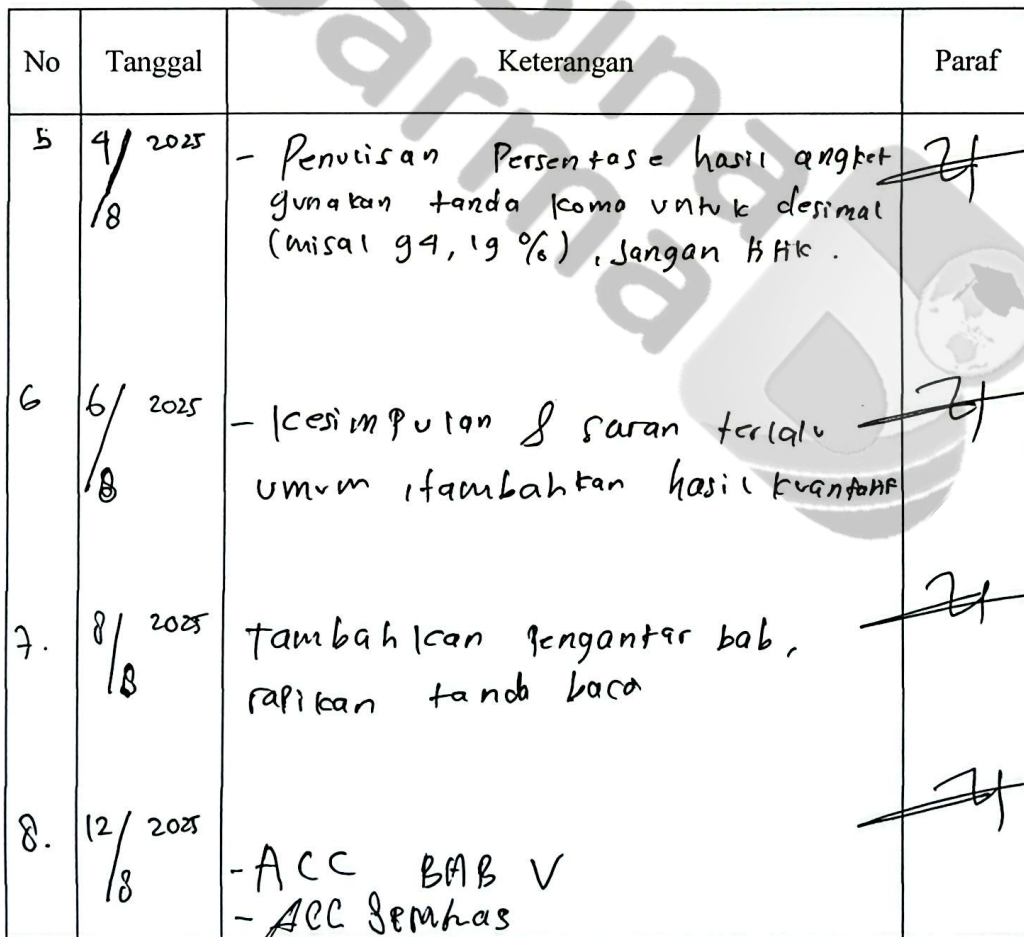 No Tanggal Keterangan Paraf
5 4/8 2025 - Penulisan Persentase hasil angket
gunakan tanda koma untuk desimal
(misal 94,19 %), Jangan titik.
6 6/8 2025 - Kesimpulan & saran terlalu
umum, tambahkan hasil kuantatif
7. 8/8 2025 tambahkan Pengantar bab,
rapikan tanda baca
8. 12/8 2025
- ACC BAB V
- ACC Semhas
bina
darma